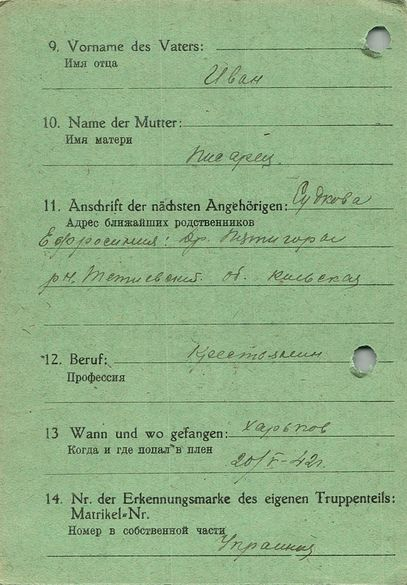 9. Vorname des Vaters:
Имя отца
Иван
10. Name der Mutter:
Имя матери
Писарец
11. Anschrift der nächsten Angehörigen: Судкова
Адрес ближайших родственников
Ефросиния: Др. Пятигоры
рн. Тетиевский об. киевская
12. Beruf: Крестьянин
Профессия
13 Wann und wo gefangen: Харьков
Когда и где попал в плен
20/V-42г.
14. Nr. der Erkennungsmarke des eigenen Truppenteils:
Matrikel-Nr.
Номер в собственной части